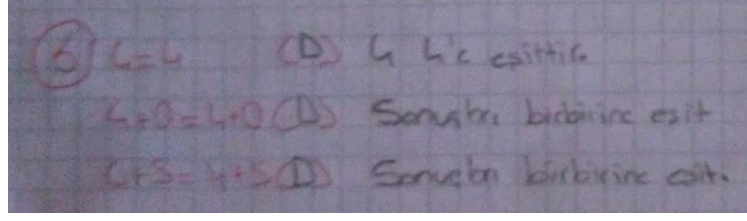 6) 4=4 (D) 4 4'e eşittir.
4+0=4+0 (D) Sonuçları birbirine eşit
4+5=4+5 (D) Sonuçları birbirine eşit.